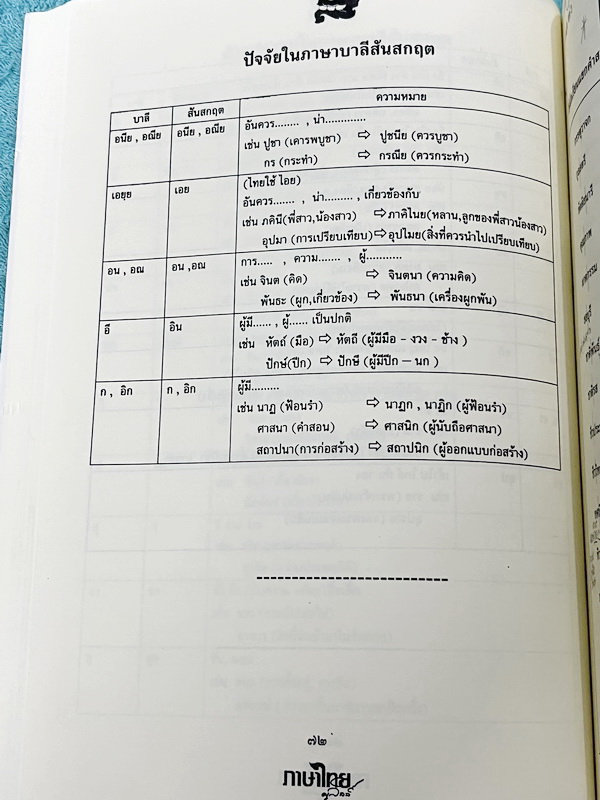 ปัจจัยในภาษาบาลีสันสกฤต
บาลี สันสกฤต ความหมาย
อนีย , อณีย อนีย , อณีย อันควร........ , น่า.............
เช่น ปูชา (เคารพบูชา) ⇨ ปูชนีย (ควรบูชา)
กร (กระทำ) ⇨ กรณีย (ควรกระทำ)
เอยฺย เอย (ไทยใช้ ไอย)
อันควร....... , น่า......... , เกี่ยวข้องกับ
เช่น ภคินี(พี่สาว,น้องสาว) ⇨ภาคิไนย(หลาน,ลูกของพี่สาวน้องสาว)
อุปมา (การเปรียบเทียบ)⇨อุปไมย(สิ่งที่ควรนำไปเปรียบเทียบ)
อน , อณ อน ,อณ การ..... , ความ....... , ผู้...........
เช่น จินต (คิด) ⇨ จินตนา (ความคิด)
พันธะ (ผูก,เกี่ยวข้อง) ⇨ พันธนา (เครื่องผูกพัน)
อี อิน ผู้มี...... , ผู้...... เป็นปกติ
เช่น หัตถ์ (มือ) ⇨ หัตถี (ผู้มีมือ - งวง - ช้าง )
ปักษ์(ปีก) ⇨ ปักษี (ผู้มีปีก – นก )
ก , อิก ก , อิก ผู้มี.........
เช่น นาฏ (ฟ้อนรำ) ⇨ นาฏก , นาฏิก (ผู้ฟ้อนรำ)
ศาสนา (คำสอน) ⇨ ศาสนิก (ผู้นับถือศาสนา)
สถาปนา(การก่อสร้าง) ⇨ สถาปนิก (ผู้ออกแบบก่อสร้าง)
๗๒
ภาษาไทย